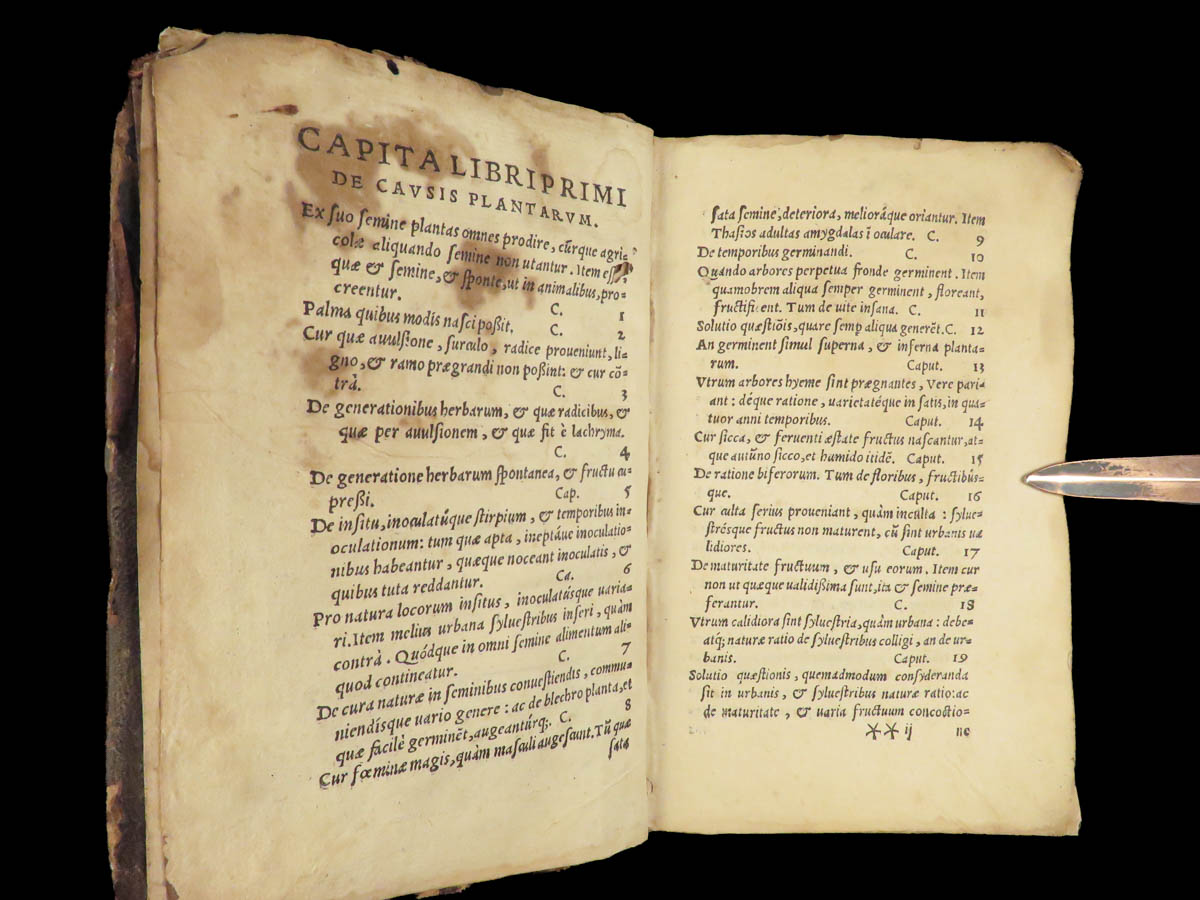 CAPITA LIBRI PRIMI
DE CAVSIS PLANTARVM.
Ex suo semine plantas omnes prodire, cũrque agri=
colæ aliquando semine non utantur. Item
quæ & semine, & sponte, ut in animalibus, pro=
creentur. C. 1
Palma quibus modis nasci poßit. C. 2
Cur quæ auulsione, surculo, radice proueniunt, li=
gno, & ramo prægrandi non poßint: & cur cõ=
trà. C. 3
De generationibus herbarum, & quæ radicibus, &
quæ per auulsionem, & quæ fit è lachryma.
C. 4
De generatione herbarum spontanea, & fructu cu=
preßi. Cap. 5
De insitu, inoculatúque stirpium, & temporibus in=
oculationum: tum quæ apta, ineptáue inoculatio=
nibus habeantur, quæque noceant inoculatis, &
quibus tuta reddantur. Ca. 6
Pro natura locorum insitus, inoculatúsque uaria=
ri. Item melius urbana syluestribus inseri, quàm
contrà. Quódque in omni semine alimentum ali=
quod contineatur. C. 7
De cura naturæ in seminibus conuestiendis, commu=
niendísque uario genere: ac de blechro planta, et
quæ facilè germinẽt, augeantúrq;. C. 8
Cur fœminæ magis, quàm masculi augescunt. Tũ quæ
sata
sata semine, deteriora, melioráque oriantur. Item
Thasios adultas amygdalas ĩoculare. C. 9
De temporibus germinandi. C. 10
Quando arbores perpetua fronde germinent. Item
quamobrem aliqua semper germinent, floreant,
fructificent. Tum de uite insana. C. 11
Solutio quæstiõis, quare semp aliqua generẽt. C. 12
An germinent simul superna, & inferna planta=
rum. Caput. 13
Vtrum arbores hyeme sint prægnantes, Vere pari=
ant: déque ratione, uarietatéque in satis, in qua=
tuor anni temporibus. Caput. 14
Cur sicca, & feruenti æstate fructus nascantur, at=
que autũno sicco, et hamido itidẽ. Caput. 15
De ratione biferorum. Tum de floribus, fructibús=
que. Caput. 16
Cur culta serius proueniant, quàm inculta: sylue=
strésque fructus non maturent, cũ sint urbanis ua
lidiores. Caput. 17
De maturitate fructuum, & usu eorum. Item cur
non ut quæque ualidißima sunt, ita & semine præ=
ferantur. C. 18
Vtrum calidiora sint syluestria, quàm urbana: debe=
atq; naturæ ratio de syluestribus colligi, an de ur=
banis. Caput. 19
Solutio quæstionis, quemadmodum consyderanda
sit in urbanis, & syluestribus naturæ ratio: ac
de maturitate, & uaria fructuum concoctio=
** ij ne